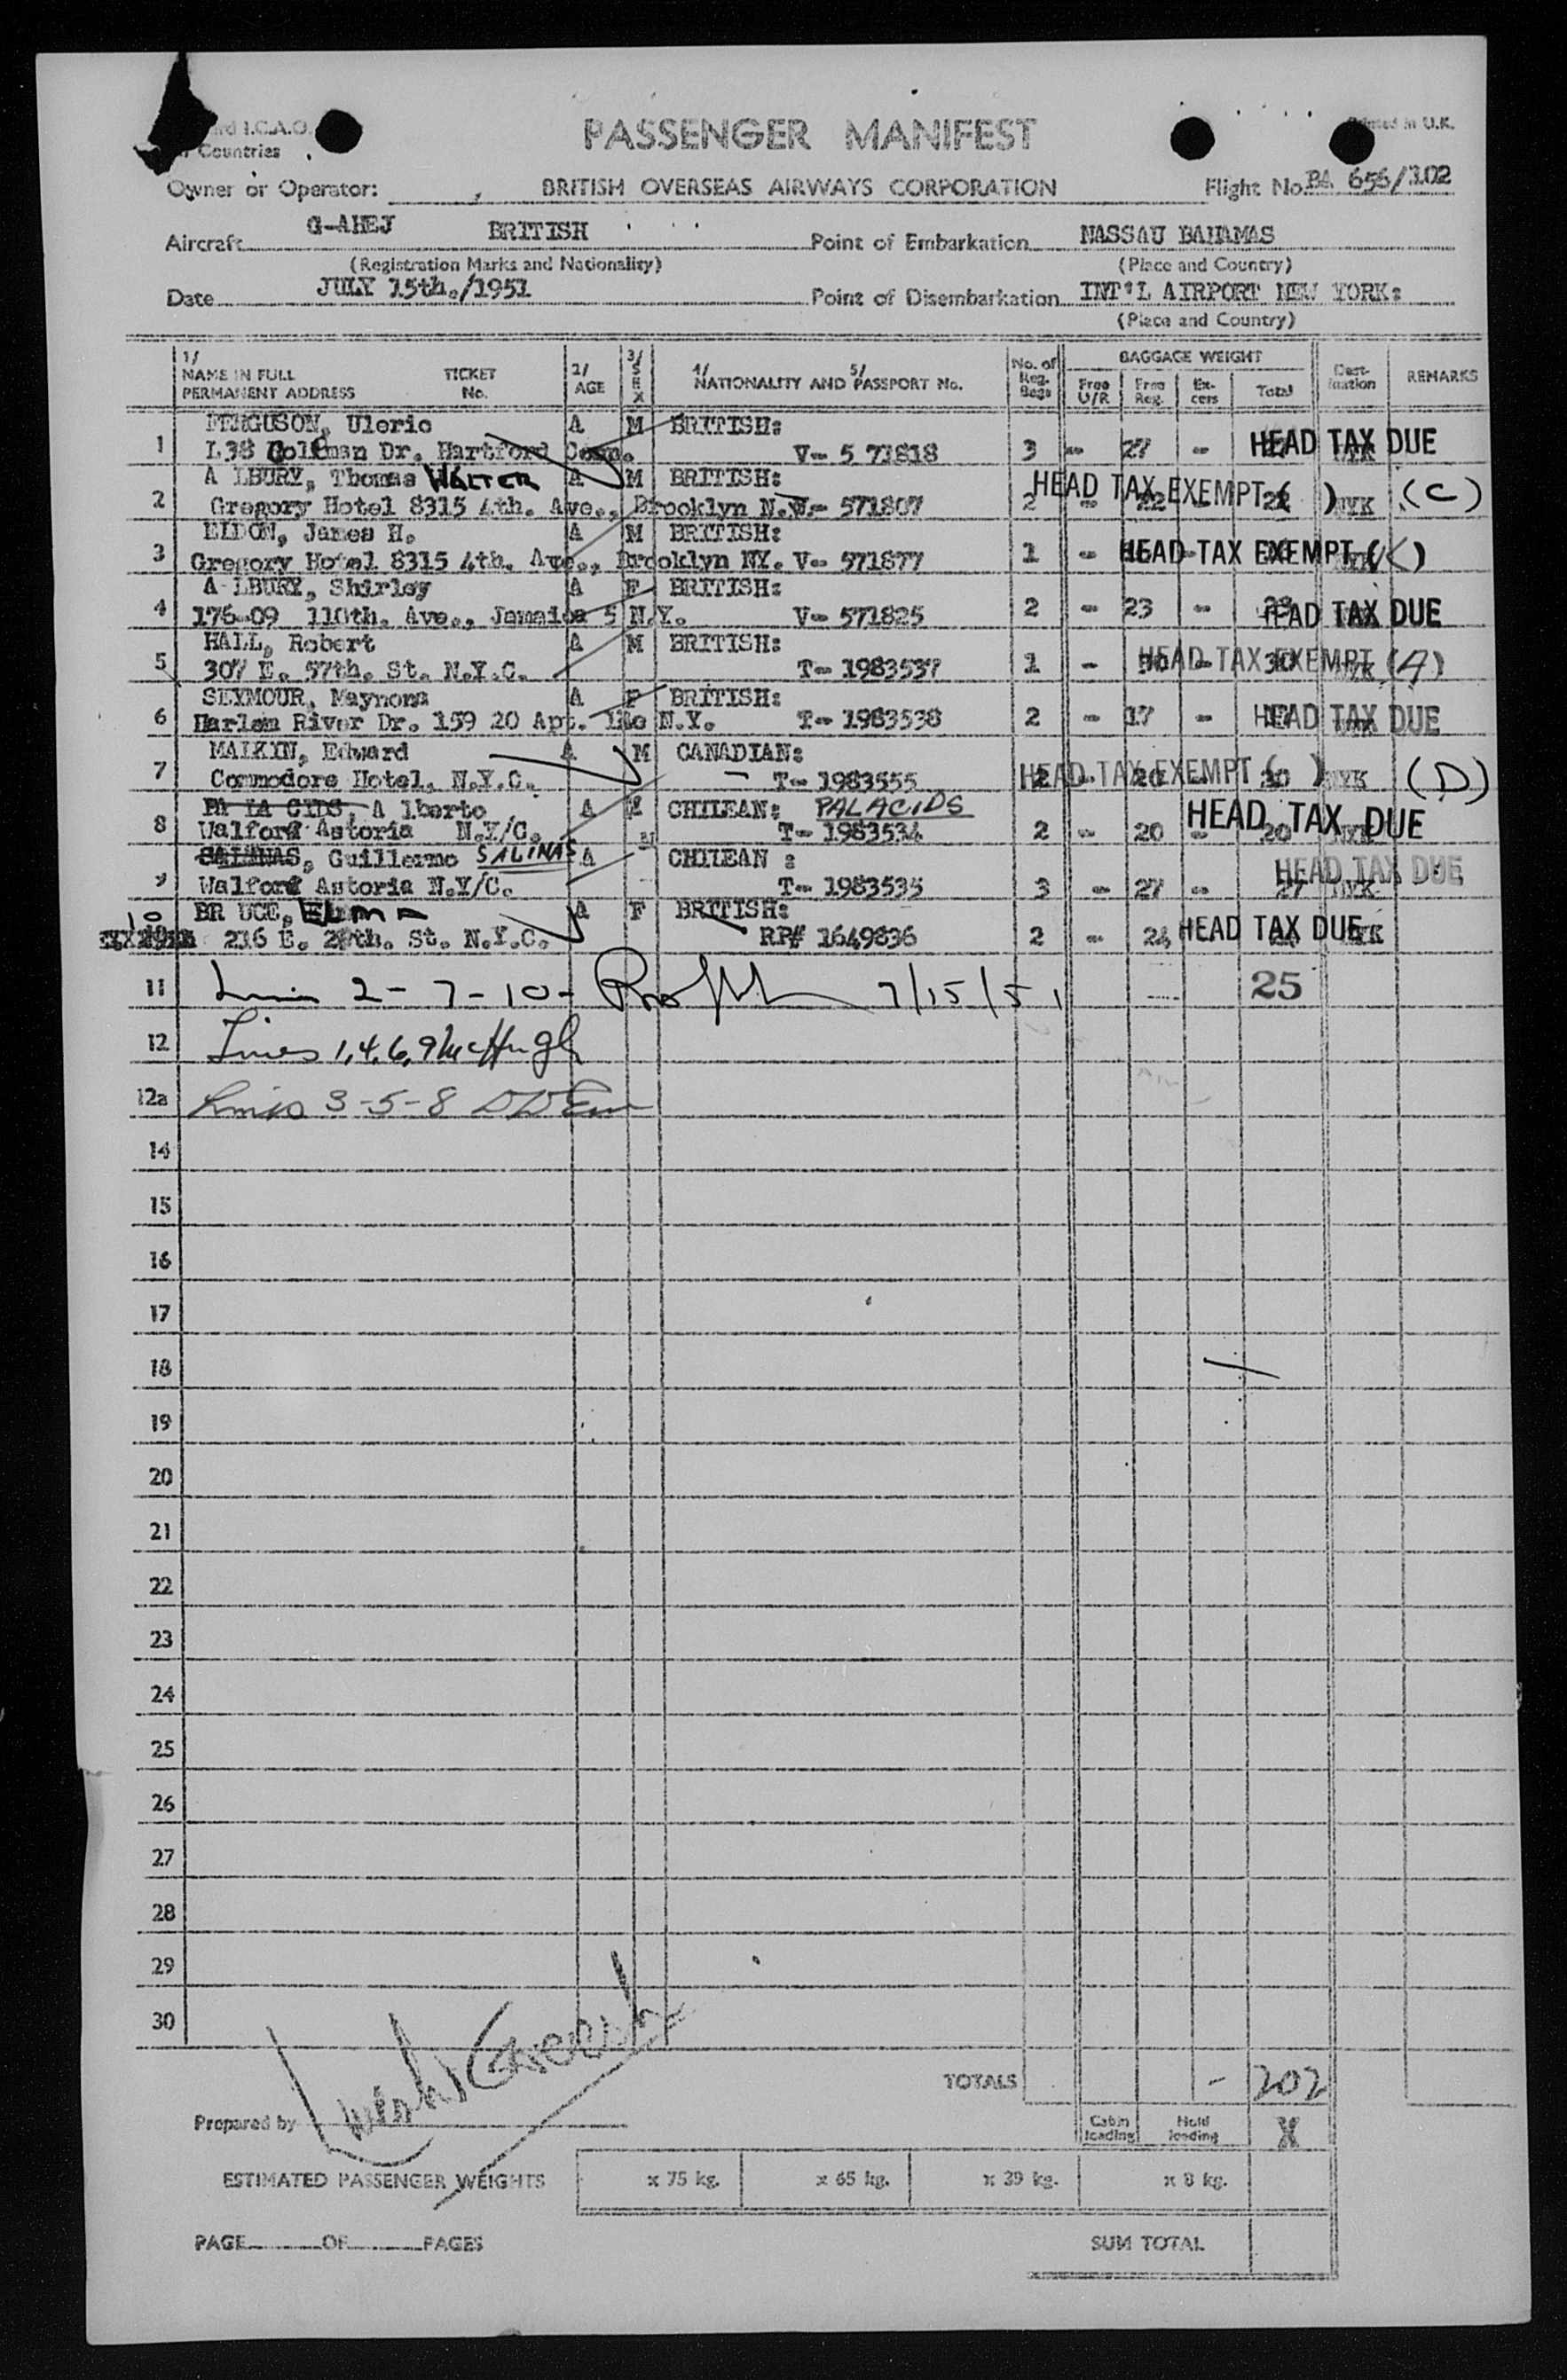 rd I.C.A.O.
Countries
PASSENGER MANIFEST
Printed in U.K.
Owner or Operator: BRITISH OVERSEAS AIRWAYS CORPORATION Flight No. BA 656/302
Aircraft G-AHEJ BRITISH Point of Embarkation NASSAU BAHAMAS
(Registration Marks and Nationality) (Place and Country)
Date JULY 15th./1951 Point of Disembarkation INT'L AIRPORT NEW YORK:
(Place and Country)
1/ NAME IN FULL PERMANENT ADDRESS TICKET No. 2/ AGE 3/ SEX 4/ NATIONALITY AND 5/ PASSPORT No. No. of Reg. Bags BAGGAGE WEIGHT Free U/R Free Reg. Ex-cess Total Dest-ination REMARKS
FERGUSON, Uleric A M BRITISH:
1 L38 Coleman Dr. Hartford Conn. V- 5 71818 3 - 27 - HEAD TAX DUE
A LBURY, Thomas WALTER A M BRITISH:
2 Gregory Hotel 8315 4th. Ave., Brooklyn N.Y.- 571807 2 - 22 HEAD TAX EXEMPT ( ) 22 NYK (C)
ELDON, James H. A M BRITISH:
3 Gregory Hotel 8315 4th. Ave., Brooklyn NY. V- 571877 1 - HEAD TAX EXEMPT ( )
A LBURY, Shirley A F BRITISH:
4 176-09 110th. Ave., Jamaica 5 N.Y. V- 571825 2 - 23 - 23 HEAD TAX DUE
HALL, Robert A M BRITISH:
5 307 E. 57th. St. N.Y.C. T- 1983537 1 - HEAD TAX EXEMPT (A)
SEYMOUR, Maynona A F BRITISH:
6 Harlem River Dr. 159 20 Apt. N.Y. T- 1983538 2 - 17 - HEAD TAX DUE
MALKIN, Edward A M CANADIAN:
7 Commodore Hotel, N.Y.C. - T- 1983555 2 - 20 HEAD TAX EXEMPT ( ) 20 NYK (D)
PA LA CIDS, A lberto A M CHILEAN: PALACIDS
8 Walford Astoria N.Y/C. T- 1983534 2 - 20 - 20 HEAD TAX DUE
SALINAS, Guillermo SALINAS A M CHILEAN :
9 Walford Astoria N.Y/C. T- 1983535 3 - 27 - 27 NYK HEAD TAX DUE
BR UCE, ELMA A F BRITISH:
10 216 E. 2 th. St. N.Y.C. RP# 1649836 2 - 24 HEAD TAX DUE
11 Lines 2- 7-10- 7/15/51 25
12 Lines 1,4,6,9 McHugh
12a Lines 3-5-8
14
15
16
17
18
19
20
21
22
23
24
25
26
27
28
29
30
TOTALS - 202
Prepared by
Cabin loading Hold loading X
ESTIMATED PASSENGER WEIGHTS x 75 kg. x 65 kg. x 39 kg. x 8 kg.
PAGE OF PAGES SUM TOTAL